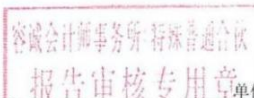 容诚会计师事务所(特殊普通合伙)
报告审核专用章
单位